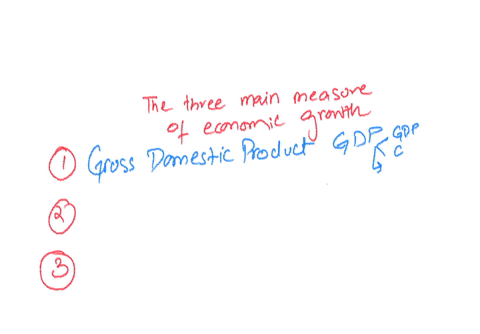 The three main measure
of economic growth
① Gross Domestic Product GDP GDP
C
②
③